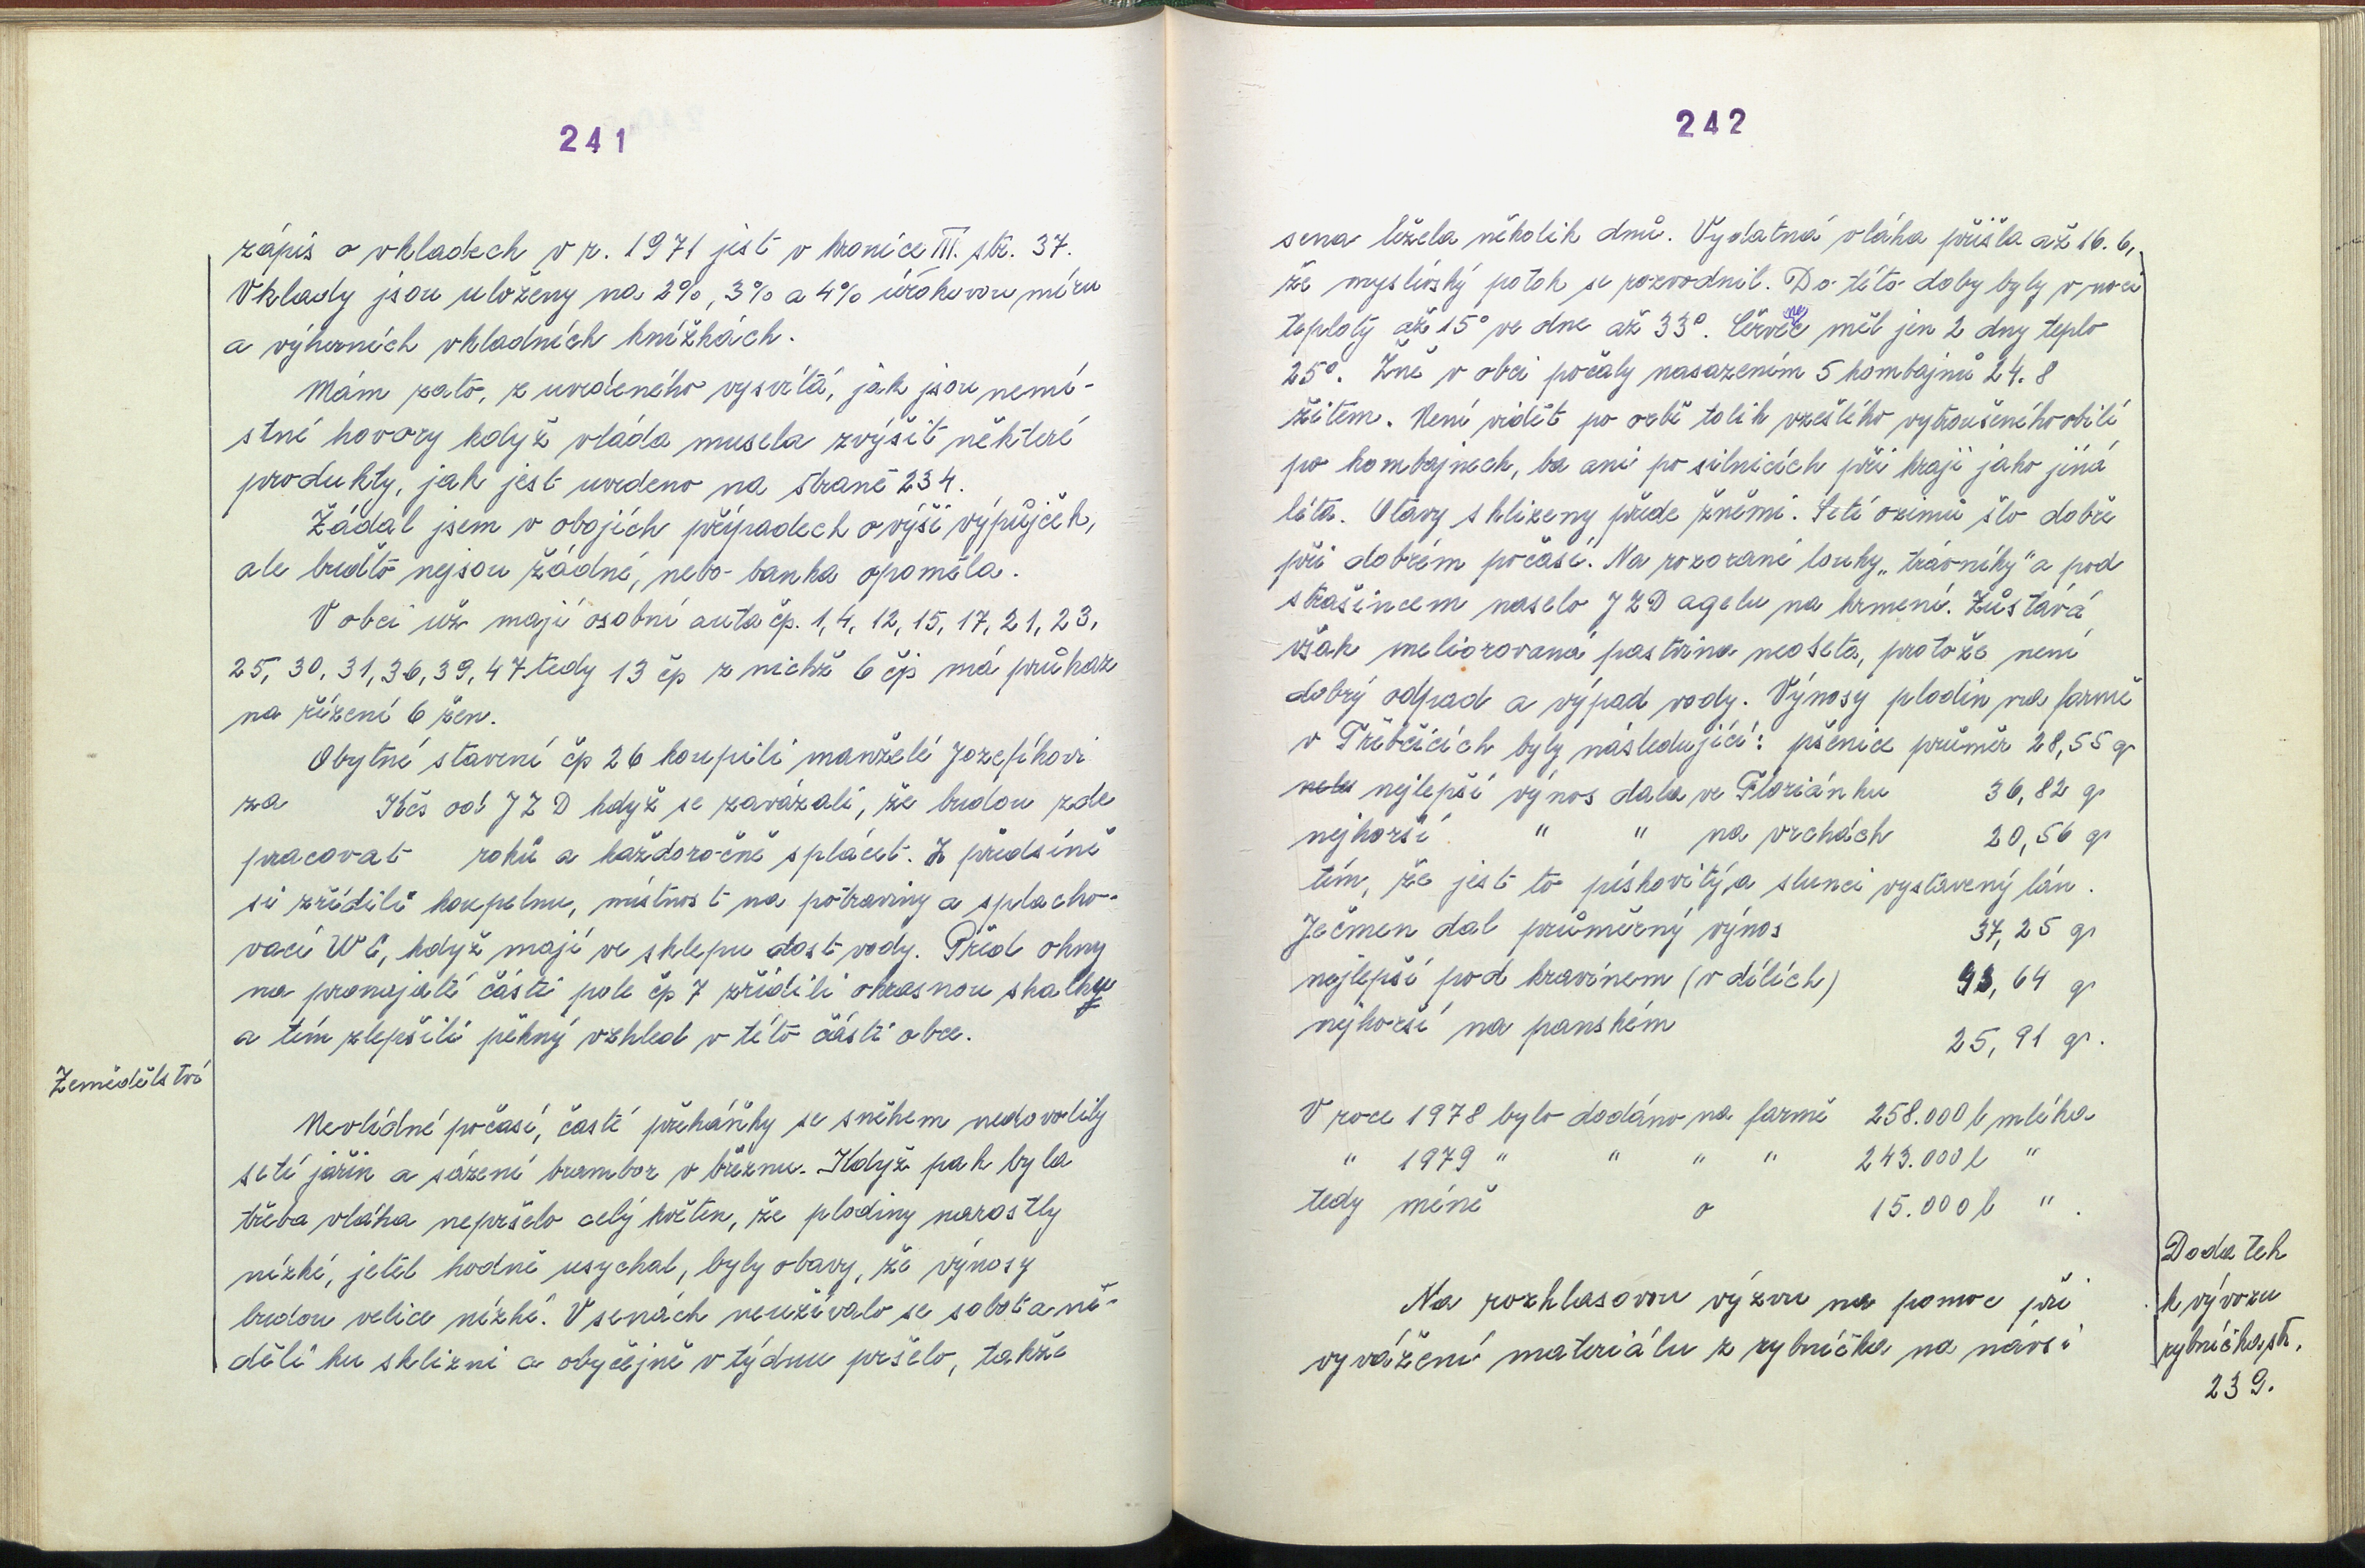 241
zápis o vkladech v r. 1971 jest v kronice III. str. 37.
Vklady jsou uloženy na 2%, 3% a 4% úrokovou míru
a výherních vkladních knížkách.
Mám zato, z uvedeného vysvítá, jak jsou nemí-
stné hovory když vláda musela zvýšit některé
produkty, jak jest uvedeno na straně 234.
Žádal jsem v obojích případech o výši výpůjček,
ale buďto nejsou žádné, nebo banka opoměla.
V obci už mají osobní auta čp. 1, 4, 12, 15, 17, 21, 23,
25, 30, 31, 36, 39, 47 tedy 13 čp z nichž 6 čp má průkaz
na řízení 6 žen.
Obytné stavení čp 26 koupili manželé Jozefíkovi
za Kčs od JZD když se zavázali, že budou zde
pracovat roků a každoročně splácet. Z předsíně
si zřídili koupelnu, místnost na potraviny a splacho-
vací WC, když mají ve sklepu dost vody. Před okny
na pronajaté části pole čp 7 zřídili okrasnou skalky
a tím zlepšili pěkný vzhled v této části obce.
Zemědělství
Nevlídné počasí, časté přeháňky se sněhem nedovolily
setí jařin a sázení brambor v březnu. Když pak byla
třeba vláha nepršelo celý květen, že plodiny narostly
nízké, jetel hodně usychal, byly obavy, že výnosy
budou velice nízké. V senách neužívalo se sobot a ne-
dělí ku sklizni a obyčejně v týdnu pršelo, takže
242
sena ležela několik dnů. Vydatná vláha přišla až 16. 6,
že myslívský potok se rozvodnil. Do této doby byly v noci
teploty až 15° ve dne až 33°. Červenec měl jen 2 dny teplo
25°. Žně v obci počaly nasazením 5 kombajnů 24. 8
žitem. Není vidět po orbě tolik vzešlého vytroušeného obilí
po kombajnech, ba ani po silnicích při kraji jako jiná
léta. Otavy sklizeny přede žněmi. Setí ozimů šlo dobře
při dobrém počasí. Na rozorané louky „trávníky" a pod
strašincem naselo JZD agelu na krmení. Zůstává
však meliorovaná pastvina neoseta, protože není
dobrý odpad a výpad vody. Výnosy plodin na farmě
v Třebčicích byly následující: pšenice průměr 28,55 q
nejlepší výnos dala ve Floriánku 36,82 q
nejhorší " " na vrchách 20,56 q
tím, že jest to pískovitý a slunci vystavený lán.
Ječmen dal průměrný výnos 37,25 q
nejlepší pod kravínem (v dílích) 43,64 q
nejhorší na panském 25,91 q.
V roce 1978 bylo dodáno na farmě 258.000 l mléka
" 1979 " " " " 243.000 l "
tedy méně o 15.000 l " .
Dodatek
k vývozu
rybníčka str.
239.
Na rozhlasovou výzvu na pomoc při
vyvážení materiálu z rybníčka na návsi